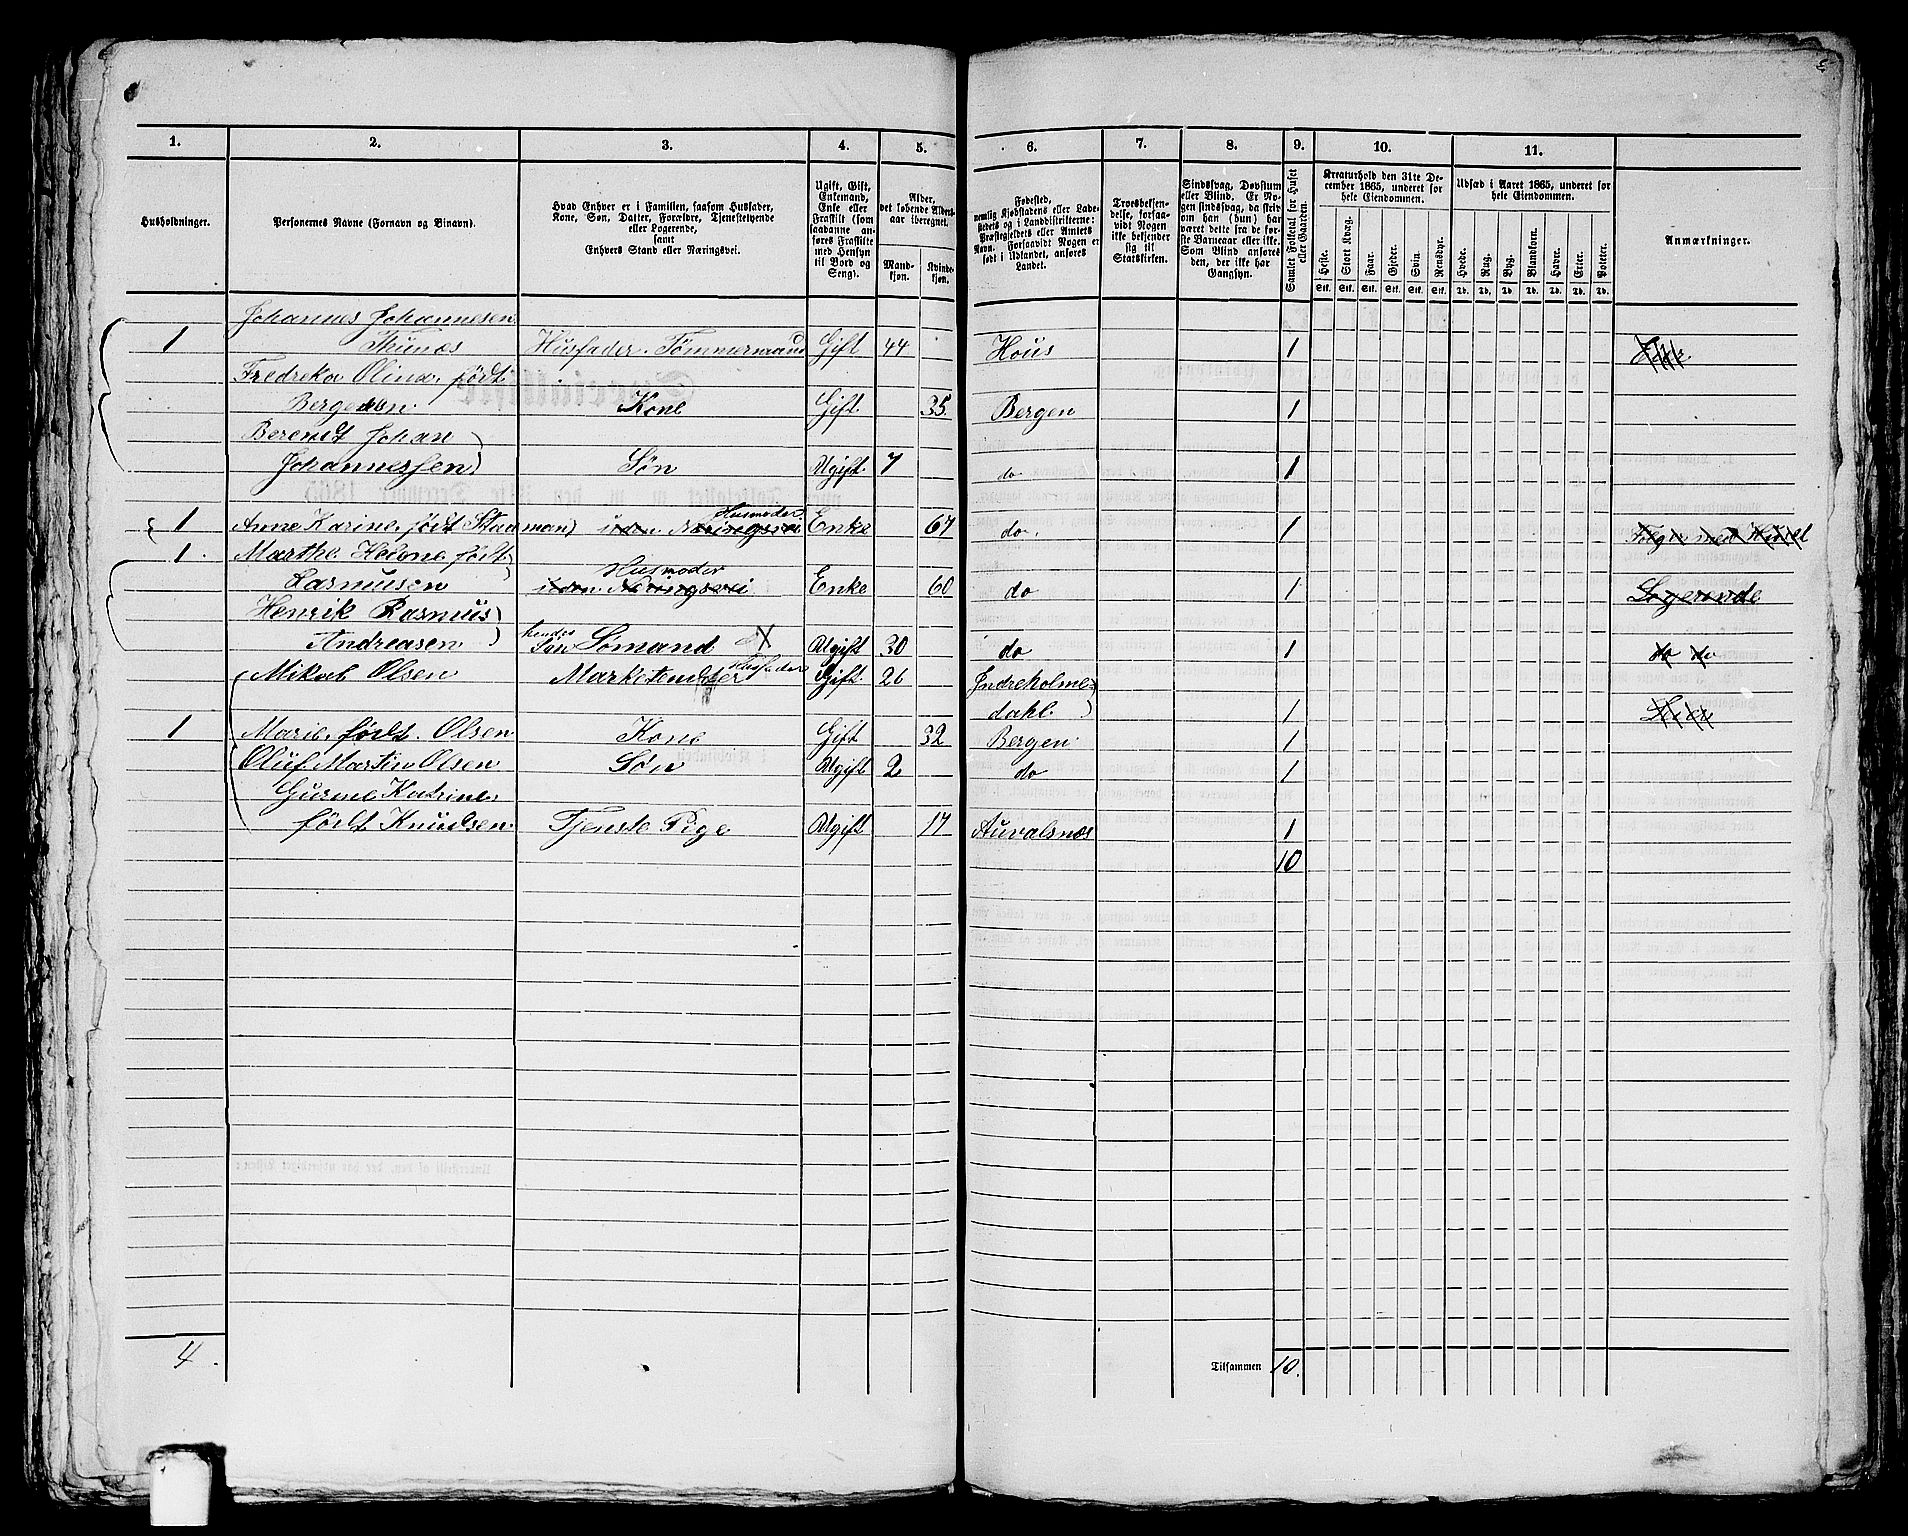 1. 2. 3. 4. 5. 6. 7. 8. 9. 10. 11.
Husholdninger.
Personernes Navne (Fornavn og Binavn).
Hvad Enhver er i Familien, saasom Husfader,
Kone, Søn, Datter, Forældre, Tjenestetyende
eller Logerende,
samt
Enhvers Stand eller Næringsvei.
Ugift, Gift,
Enkemand,
Enke eller
Fraskilt (som
saadanne an-
føres Fraskilte
med Hensyn
til Bord og
Seng).
Alder,
det løbende Alders-
aar iberegnet.
Mand-
kjøn.
Kvinde-
kjøn.
Fødested,
nemlig Kjøbstadens eller Lade-
stedets og i Landdistrikterne:
Præstegjeldets eller Annexets
Navn. Forsaavidt Nogen er
født i Udlandet, anføres
Landet.
Troesbekjen-
delse, forsaa-
vidt Nogen
ikke bekjender
sig til
Statskirken.
Sindssvag, Døvstum
eller Blind. Er No-
gen sindssvag, da skriv
om han (hun) har
været dette fra de før-
ste Barneaar eller ikke.
Som Blind anføres
den, der ikke har
Gangsyn.
Samlet Folketal for Huset
eller Gaarden.
Kreaturhold den 31te De-
cember 1865, underet for
hele Eiendommen.
Heste. Stort Kvæg. Faar. Gjeder. Svin. Rensdyr.
Stk. Stk. Stk. Stk. Stk. Stk.
Udsæd i Aaret 1865, underet for
hele Eiendommen.
Hvede. Rug. Byg. Blandkorn. Havre. Erter. Poteter.
Td. Td. Td. Td. Td. Td. Td.
Anmærkninger.
Johannes Johannesen
1 Thunæs Husfader. Tømmermand Gift 44 Hous 1
Fredreka Olina, født
Bergesen Kone Gift 35 Bergen 1
Berendt Johan
Johannessen Søn Ugift 7 do 1
1 Anne Karine, født Staaman Husmoder uden Næringsvei Enke 67 do. 1 Følger med Huset
1. Marthe Helene født
Rasmusen Husmoder uden Næringsvei Enke 60 do 1 Logerende
Henrik Rasmus
Andreasen hendes Søn Sømand X Ugift 30 do 1 do do
Mikal Olsen Marketender Husfader Gift 26 Indreholme-
dahl. 1
1 Marie, født. Olsen Kone Gift 32 Bergen 1
Oluf Martin Olsen Søn Ugift 2 do 1
Gurine Katrine,
født Knudsen Tjenste Pige Ugift 17 Auvalsnæs 1
10
4. Tilsammen 10.